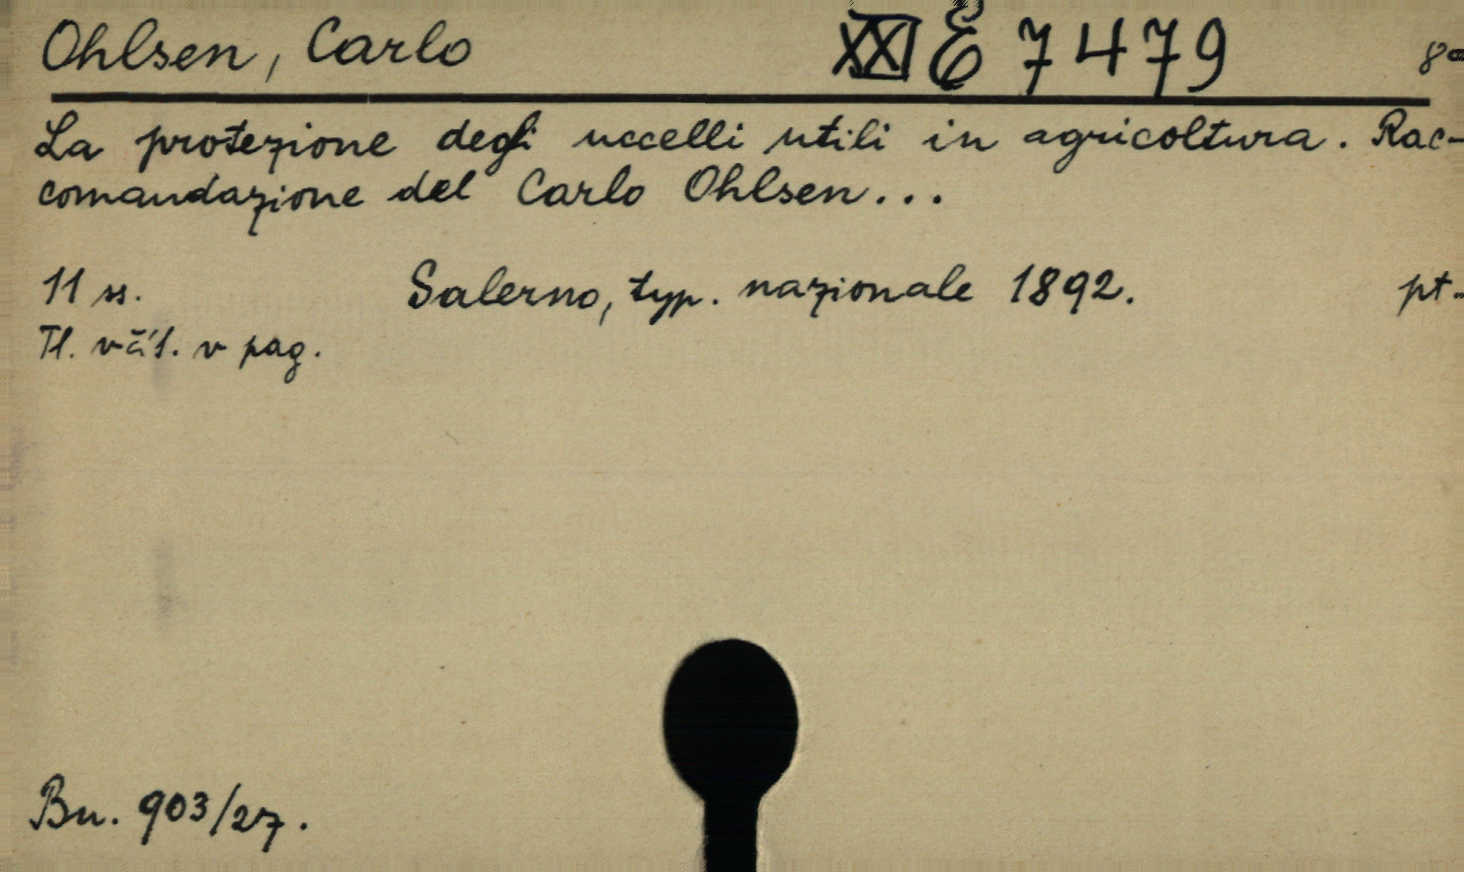 Ohlsen, Carlo XXI E 7479 8°
La protezione degli uccelli utili in agricoltura. Rac-
comandazione del Carlo Ohlsen...
11 ss. Salerno, typ. nazionale 1892. pt.
Tl. včít. v pag.
Bn. 903/27.